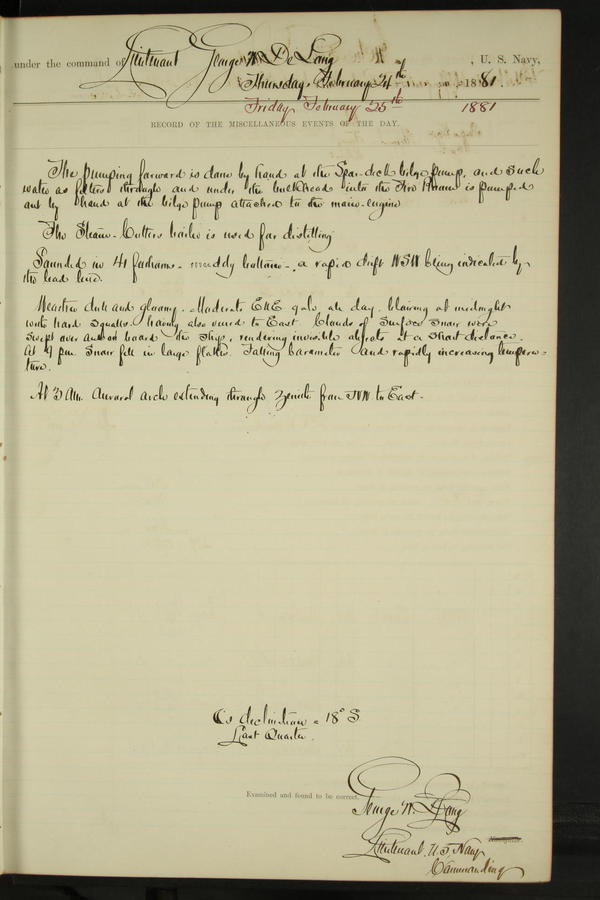 under the command of Lieutenant George W. De Long , U. S. Navy,
Thursday, February 24th 1881.
Friday February 25th 1881
RECORD OF THE MISCELLANEOUS EVENTS OF THE DAY.
The pumping forward is done by hand at the Spar-deck bilge pump, and such
water as filters through and under the bulkhead into the Fire Room is pumped
out by hand at the bilge pump attached to the main-engine
The Steam-Cutters boiler is used for distilling
Sounded in 41 fathoms - muddy bottom -, a rapid drift WSW being indicated by
the lead line.
Weather dull and gloomy. Moderate ENE gale all day, blowing at midnight
with hard squalls having also veered to East. Clouds of surface snow were
swept over and on board the ship, rendering invisible objects at a short distance.
At 9 pm Snow fell in large flakes. Falling barometer and rapidly increasing tempera-
ture.
At 3 AM. Auroral arch extending through zenith from to East.
declination = 18° S
Last Quarter.
Examined and found to be correct.
George W. De Long
Lieutenant, U.S. Navy
Commanding